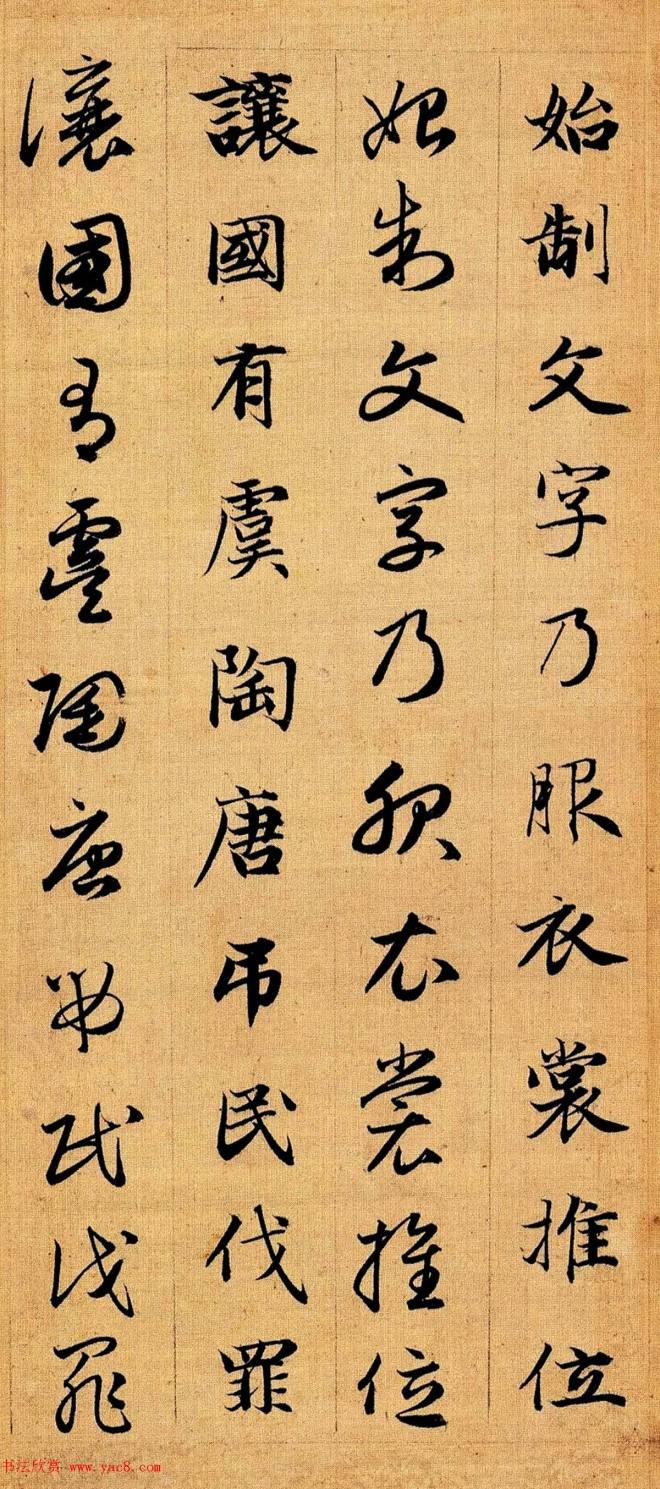 始制文字乃服衣裳推位
始制文字乃服衣裳推位
讓國有虞陶唐吊民伐罪
讓國有虞陶唐吊民伐罪
书法欣赏 www.yac8.com